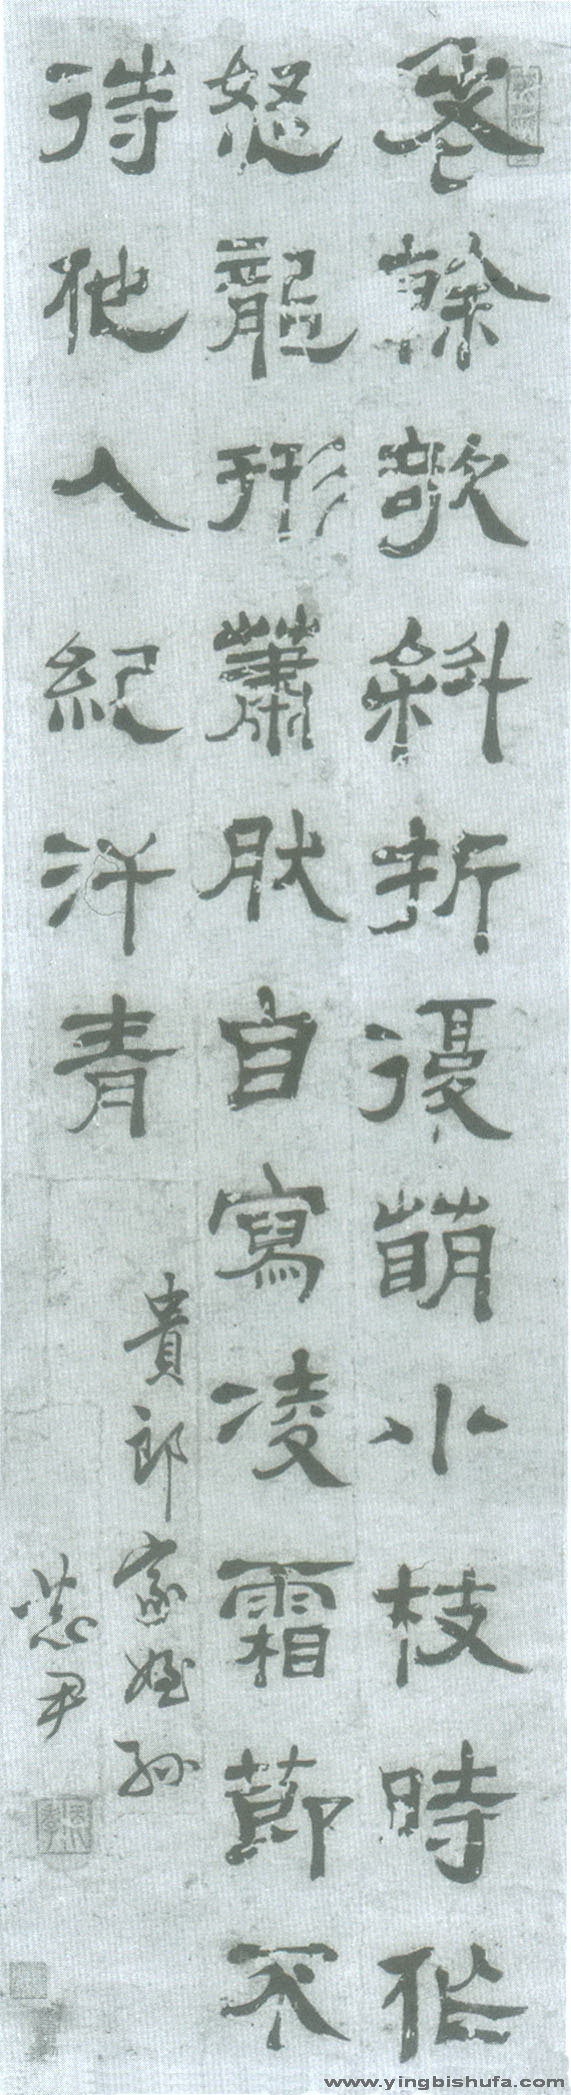 老榦欹斜折復萌小枝時作
怒龍形蕭肰自寫凌霜節不
待他人紀汗青
貴郎家姪孫
尹
www.yingbishufa.com